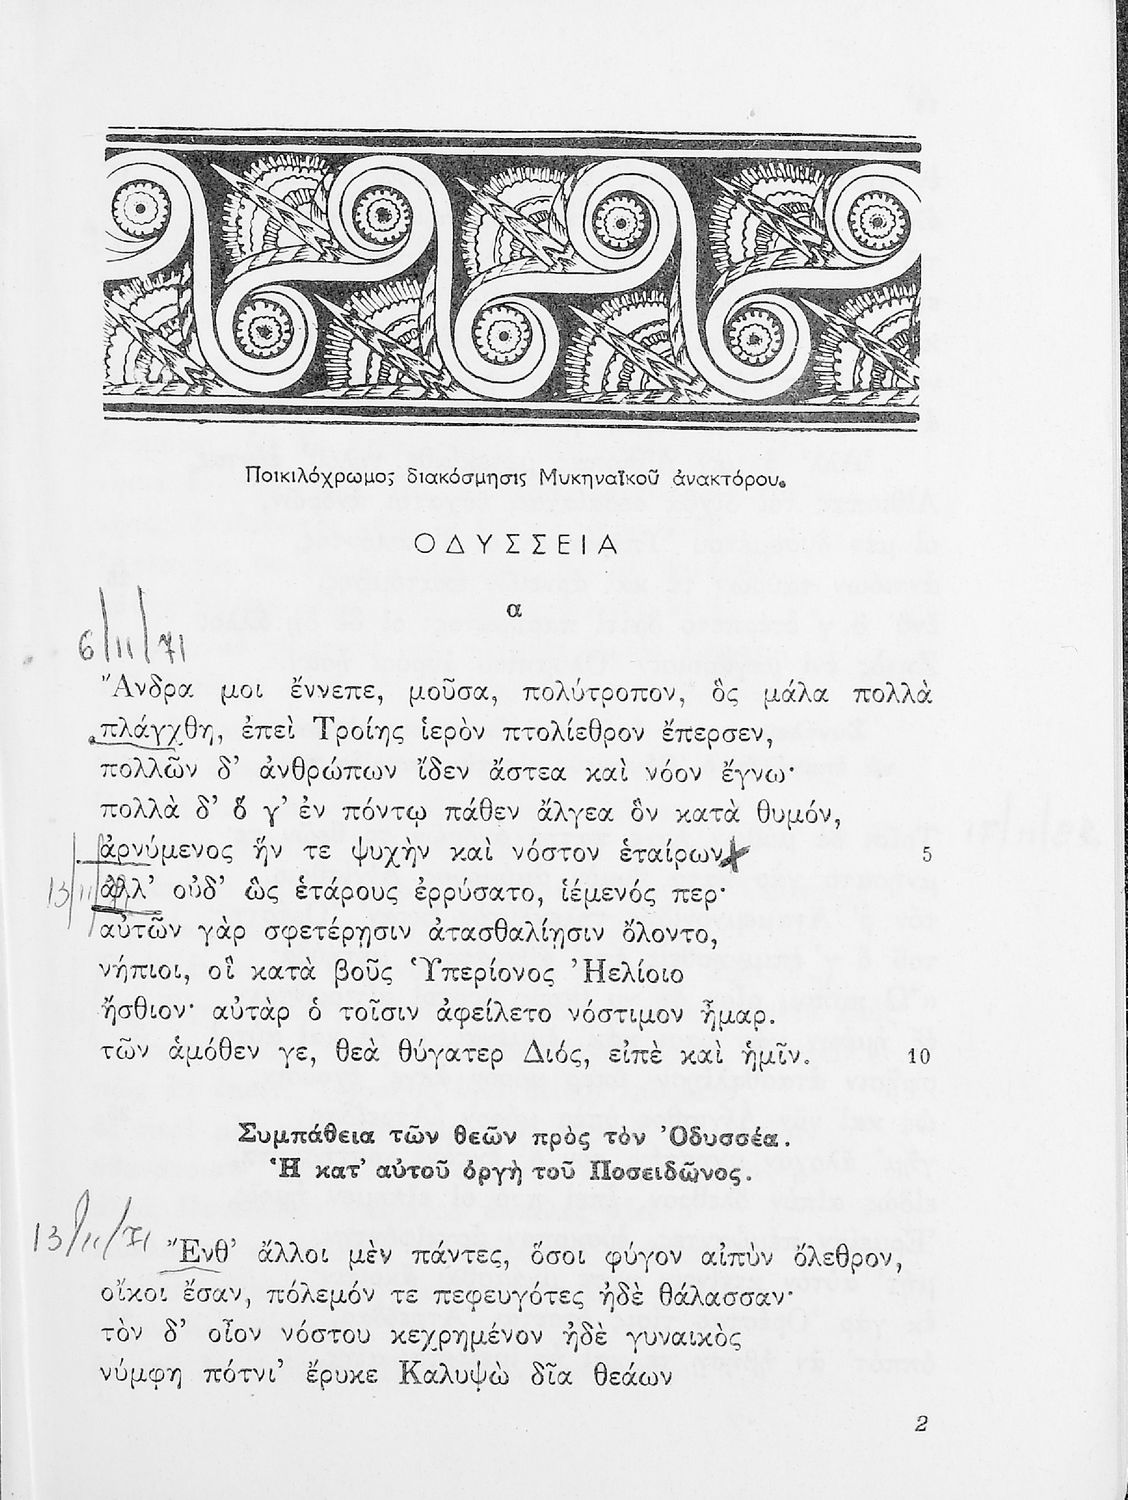 Ποικιλόχρωμος διακόσμησις Μυκηναϊκοῦ ἀνακτόρου.
ΟΔΥΣΣΕΙΑ
α
6/11/71
Ἄνδρα μοι ἔννεπε, μοῦσα, πολύτροπον, ὃς μάλα πολλὰ
πλάγχθη, ἐπεὶ Τροίης ἱερὸν πτολίεθρον ἔπερσεν,
πολλῶν δ’ ἀνθρώπων ἴδεν ἄστεα καὶ νόον ἔγνω·
πολλὰ δ’ ὅ γ’ ἐν πόντῳ πάθεν ἄλγεα ὃν κατὰ θυμόν,
ἀρνύμενος ἥν τε ψυχὴν καὶ νόστον ἑταίρων 5
13/11/71
ἀλλ’ οὐδ’ ὣς ἑτάρους ἐρρύσατο, ἱέμενός περ·
αὐτῶν γὰρ σφετέρῃσιν ἀτασθαλίῃσιν ὄλοντο,
νήπιοι, οἳ κατὰ βοῦς Ὑπερίονος Ἠελίοιο
ἤσθιον· αὐτὰρ ὁ τοῖσιν ἀφείλετο νόστιμον ἦμαρ.
τῶν ἁμόθεν γε, θεὰ θύγατερ Διός, εἰπὲ καὶ ἡμῖν. 10
Συμπάθεια τῶν θεῶν πρὸς τὸν Ὀδυσσέα.
Ἡ κατ’ αὐτοῦ ὀργὴ τοῦ Ποσειδῶνος.
13/11/71
Ἔνθ’ ἄλλοι μὲν πάντες, ὅσοι φύγον αἰπὺν ὄλεθρον,
οἴκοι ἔσαν, πόλεμόν τε πεφευγότες ἠδὲ θάλασσαν·
τὸν δ’ οἶον νόστου κεχρημένον ἠδὲ γυναικὸς
νύμφη πότνι’ ἔρυκε Καλυψὼ δῖα θεάων
2